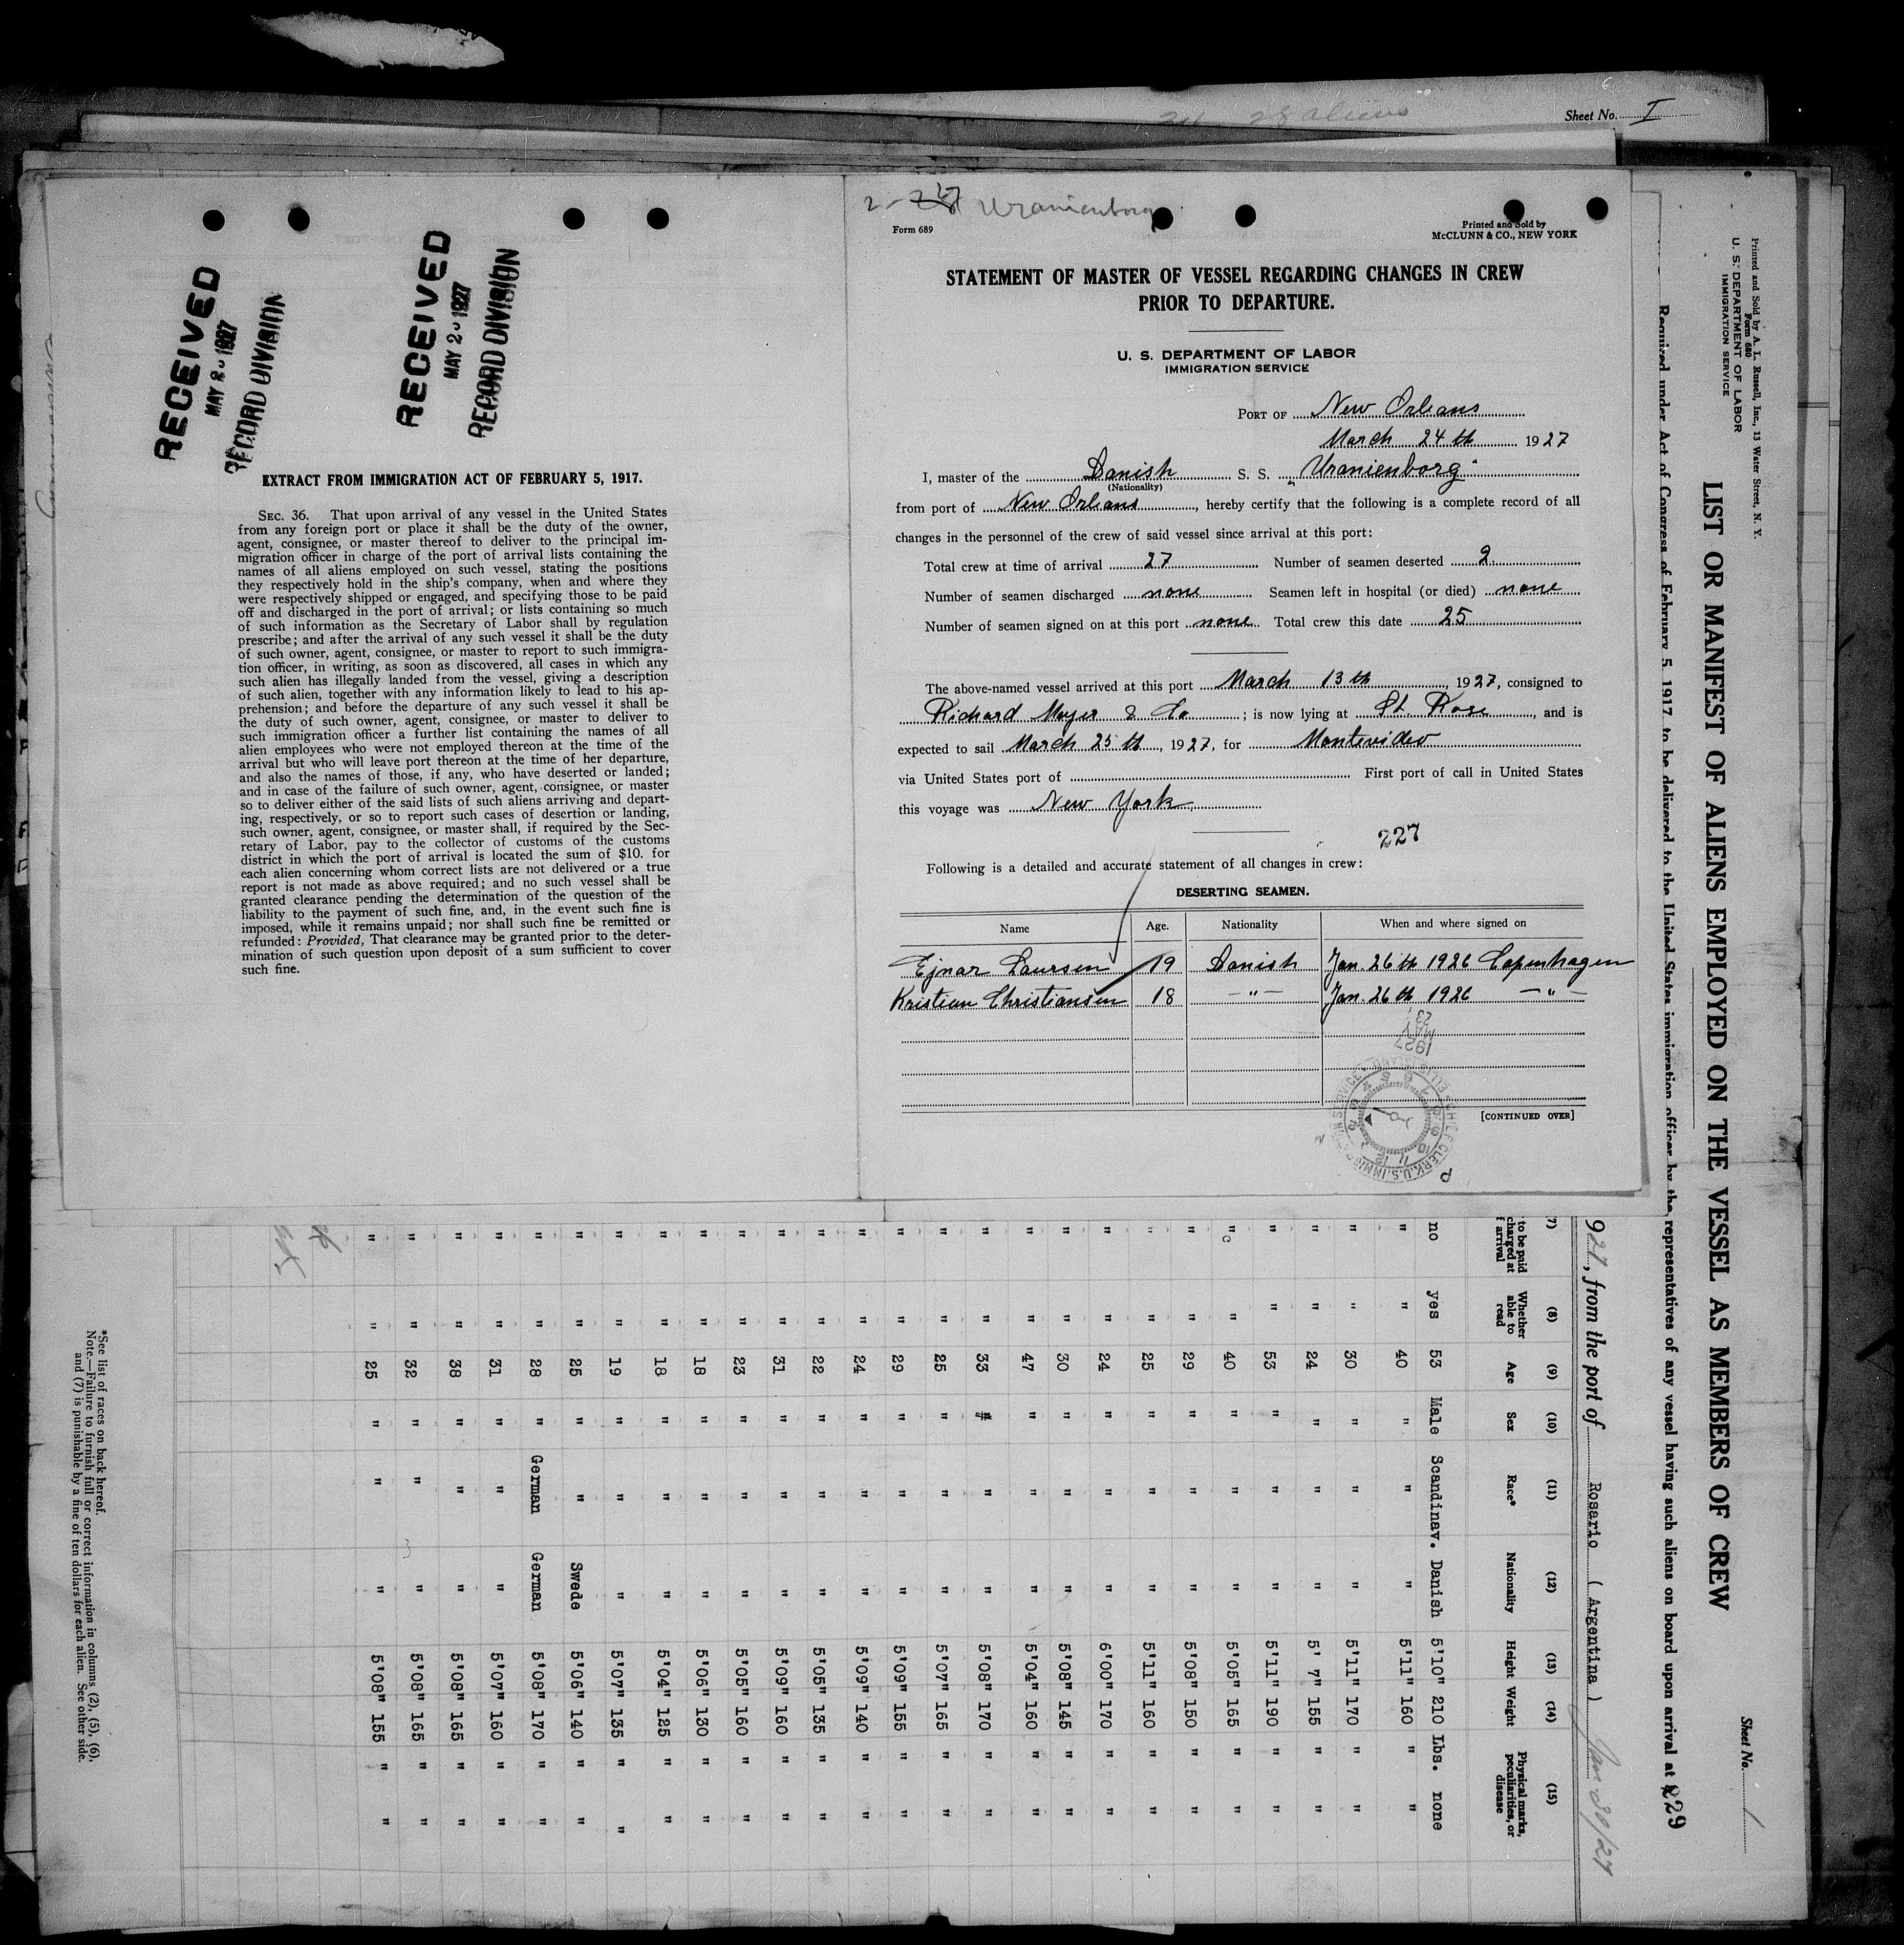 28 aliens
Sheet No. I
RECEIVED
MAY 2 1927
RECORD DIVISION
RECEIVED
MAY 2 1927
RECORD DIVISION
EXTRACT FROM IMMIGRATION ACT OF FEBRUARY 5, 1917.
SEC. 36. That upon arrival of any vessel in the United States
from any foreign port or place it shall be the duty of the owner,
agent, consignee, or master thereof to deliver to the principal im-
migration officer in charge of the port of arrival lists containing the
names of all aliens employed on such vessel, stating the positions
they respectively hold in the ship's company, when and where they
were respectively shipped or engaged, and specifying those to be paid
off and discharged in the port of arrival; or lists containing so much
of such information as the Secretary of Labor shall by regulation
prescribe; and after the arrival of any such vessel it shall be the duty
of such owner, agent, consignee, or master to report to such immigra-
tion officer, in writing, as soon as discovered, all cases in which any
such alien has illegally landed from the vessel, giving a description
of such alien, together with any information likely to lead to his ap-
prehension; and before the departure of any such vessel it shall be
the duty of such owner, agent, consignee, or master to deliver to
such immigration officer a further list containing the names of all
alien employees who were not employed thereon at the time of the
arrival but who will leave port thereon at the time of her departure,
and also the names of those, if any, who have deserted or landed;
and in case of the failure of such owner, agent, consignee, or master
so to deliver either of the said lists of such aliens arriving and depart-
ing, respectively, or so to report such cases of desertion or landing,
such owner, agent, consignee, or master shall, if required by the Sec-
retary of Labor, pay to the collector of customs of the customs
district in which the port of arrival is located the sum of $10. for
each alien concerning whom correct lists are not delivered or a true
report is not made as above required; and no such vessel shall be
granted clearance pending the determination of the question of the
liability to the payment of such fine, and, in the event such fine is
imposed, while it remains unpaid; nor shall such fine be remitted or
refunded: Provided, That clearance may be granted prior to the deter-
mination of such question upon deposit of a sum sufficient to cover
such fine.
Uranienborg
Form 689
Printed and Sold by
McCLUNN & CO., NEW YORK
STATEMENT OF MASTER OF VESSEL REGARDING CHANGES IN CREW
PRIOR TO DEPARTURE.
U. S. DEPARTMENT OF LABOR
IMMIGRATION SERVICE
PORT OF New Orleans
March 24th 1927
I, master of the Danish S. S. "Uranienborg"
(Nationality)
from port of New Orleans, hereby certify that the following is a complete record of all
changes in the personnel of the crew of said vessel since arrival at this port:
Total crew at time of arrival 27 Number of seamen deserted 2
Number of seamen discharged none Seamen left in hospital (or died) none
Number of seamen signed on at this port none Total crew this date 25
The above-named vessel arrived at this port March 13th, 1927, consigned to
Richard Meyer & Co; is now lying at St. Rose, and is
expected to sail March 25th, 1927, for Montevideo
via United States port of First port of call in United States
this voyage was New York
227
Following is a detailed and accurate statement of all changes in crew:
DESERTING SEAMEN.
Name Age. Nationality When and where signed on
Ejnar Laursen 19 Danish Jan. 26th 1926 Copenhagen
Kristian Christiansen 18 -"- Jan. 26th 1926 -"-
MAY 23
1927
CHIEF CLERK, U.S. IMMIGRATION SERVICE, ELLIS ISLAND
[CONTINUED OVER]
Printed and Sold by A. L. Russell, Inc., 13 Water Street, N. Y.
Form 680
U. S. DEPARTMENT OF LABOR
IMMIGRATION SERVICE
Sheet No. 1
LIST OR MANIFEST OF ALIENS EMPLOYED ON THE VESSEL AS MEMBERS OF CREW
Required under Act of Congress of February 5, 1917 to be delivered to the United States immigration officer by the representatives of any vessel having such aliens on board upon arrival at
229
927, from the port of Rosario ( Argentina ) Jan 30/27
7) (8) (9) (10) (11) (12) (13) (14) (15)
to be paid charged at f arrival Whether able to read Age Sex Race* Nationality Height Weight Physical marks, peculiarities, or disease
no yes 53 Male Scandinav. Danish 5'10" 210 Lbs. none
" " 40 " " " 5'11" 160 " "
" " 30 " " " 5'11" 170 " "
" " 24 " " " 5' 7" 155 " "
" " 53 " " " 5'11" 190 " "
" " 40 " " " 5'05" 165 " "
" " 29 " " " 5'08" 150 " "
" " 25 " " " 5'11" 160 " "
" " 24 " " " 6'00" 170 " "
" " 30 " " " 5'08" 145 " "
" " 47 " " " 5'04" 160 " "
" " 33 " " " 5'08" 170 " "
" " 25 " " " 5'07" 165 " "
" " 29 " " " 5'09" 155 " "
" " 24 " " " 5'09" 140 " "
" " 22 " " " 5'05" 135 " "
" " 31 " " " 5'09" 160 " "
" " 23 " " " 5'05" 160 " "
" " 18 " " " 5'06" 130 " "
" " 18 " " " 5'04" 125 " "
" " 19 " " " 5'07" 135 " "
" " 25 " " Swede 5'06" 140 " "
" " 28 " German German 5'08" 170 " "
" " 31 " " " 5'07" 160 " "
" " 38 " " " 5'08" 165 " "
" " 32 " " " 5'08" 165 " "
" " 25 " " " 5'08" 155 " "
*See list of races on back hereof.
Note.—Failure to furnish full or correct information in columns (2), (5), (6),
and (7) is punishable by a fine of ten dollars for each alien. See other side.